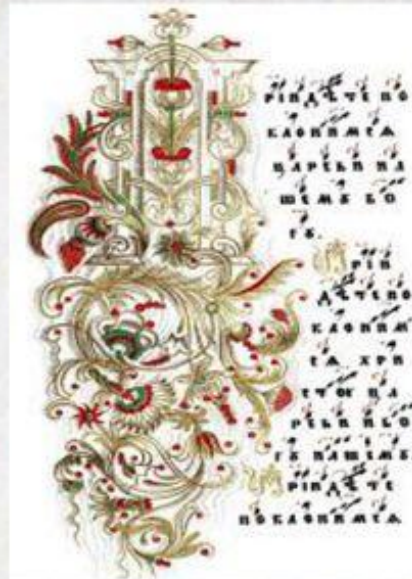 РІИДѢТЕ ПО
КЛОНИМСѦ
ЦАРЕВИ НА
ШЕМꙊ БО
ГꙊ.
ПРІИ
ДѢТЕ ПО
КЛОНИМ
СѦ ХРИ
СТОВИ ЦА
РЕВИ И БО
ГꙊ НАШЕМꙊ
ПРІИДѢТЕ
ПОКЛОНИМСѦ.